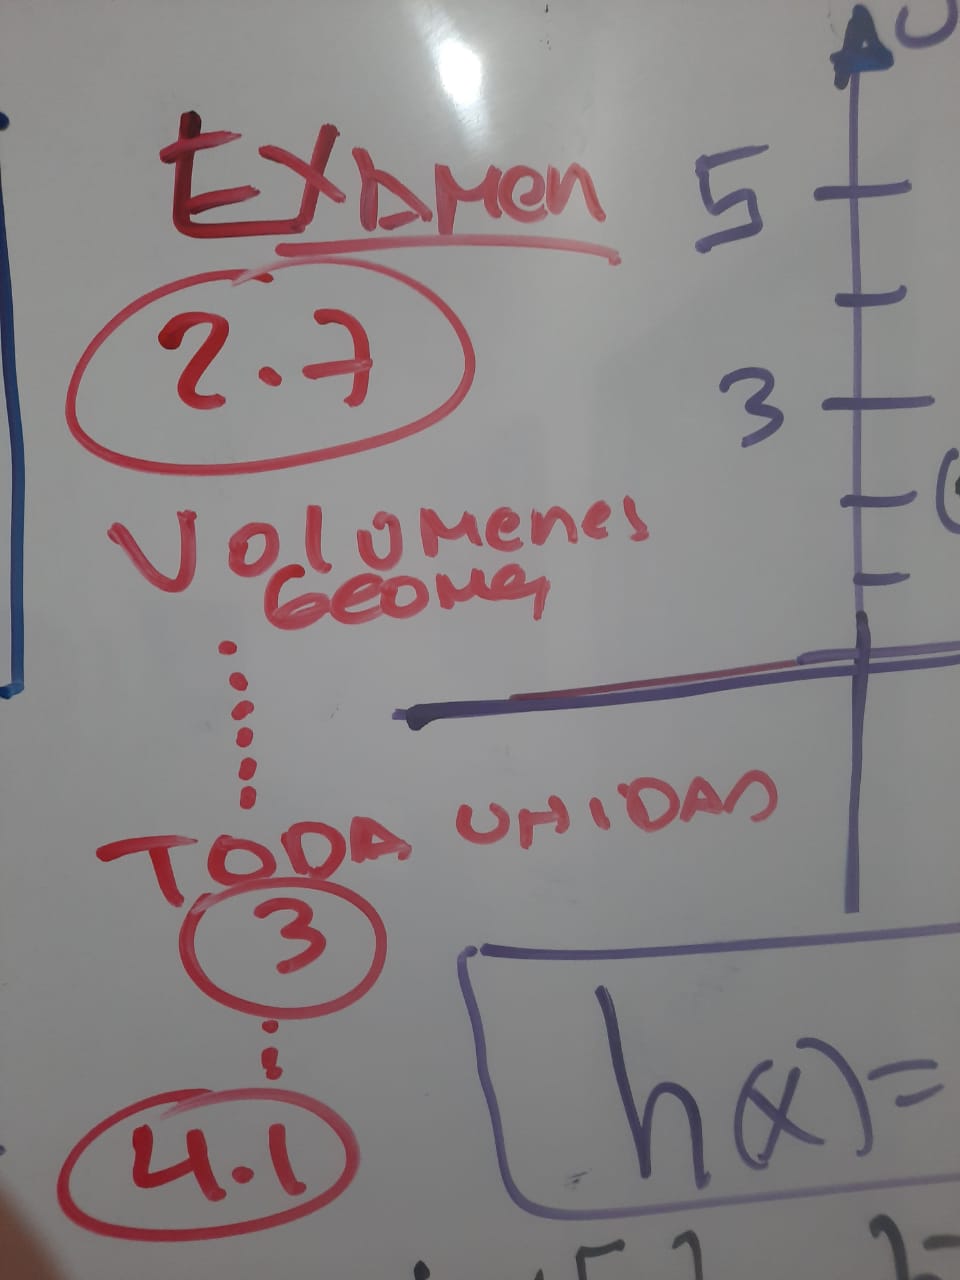 Examen
2.7
Volumenes
Geome
TODA UNIDAD
3
4.1
5
3
h(x)=